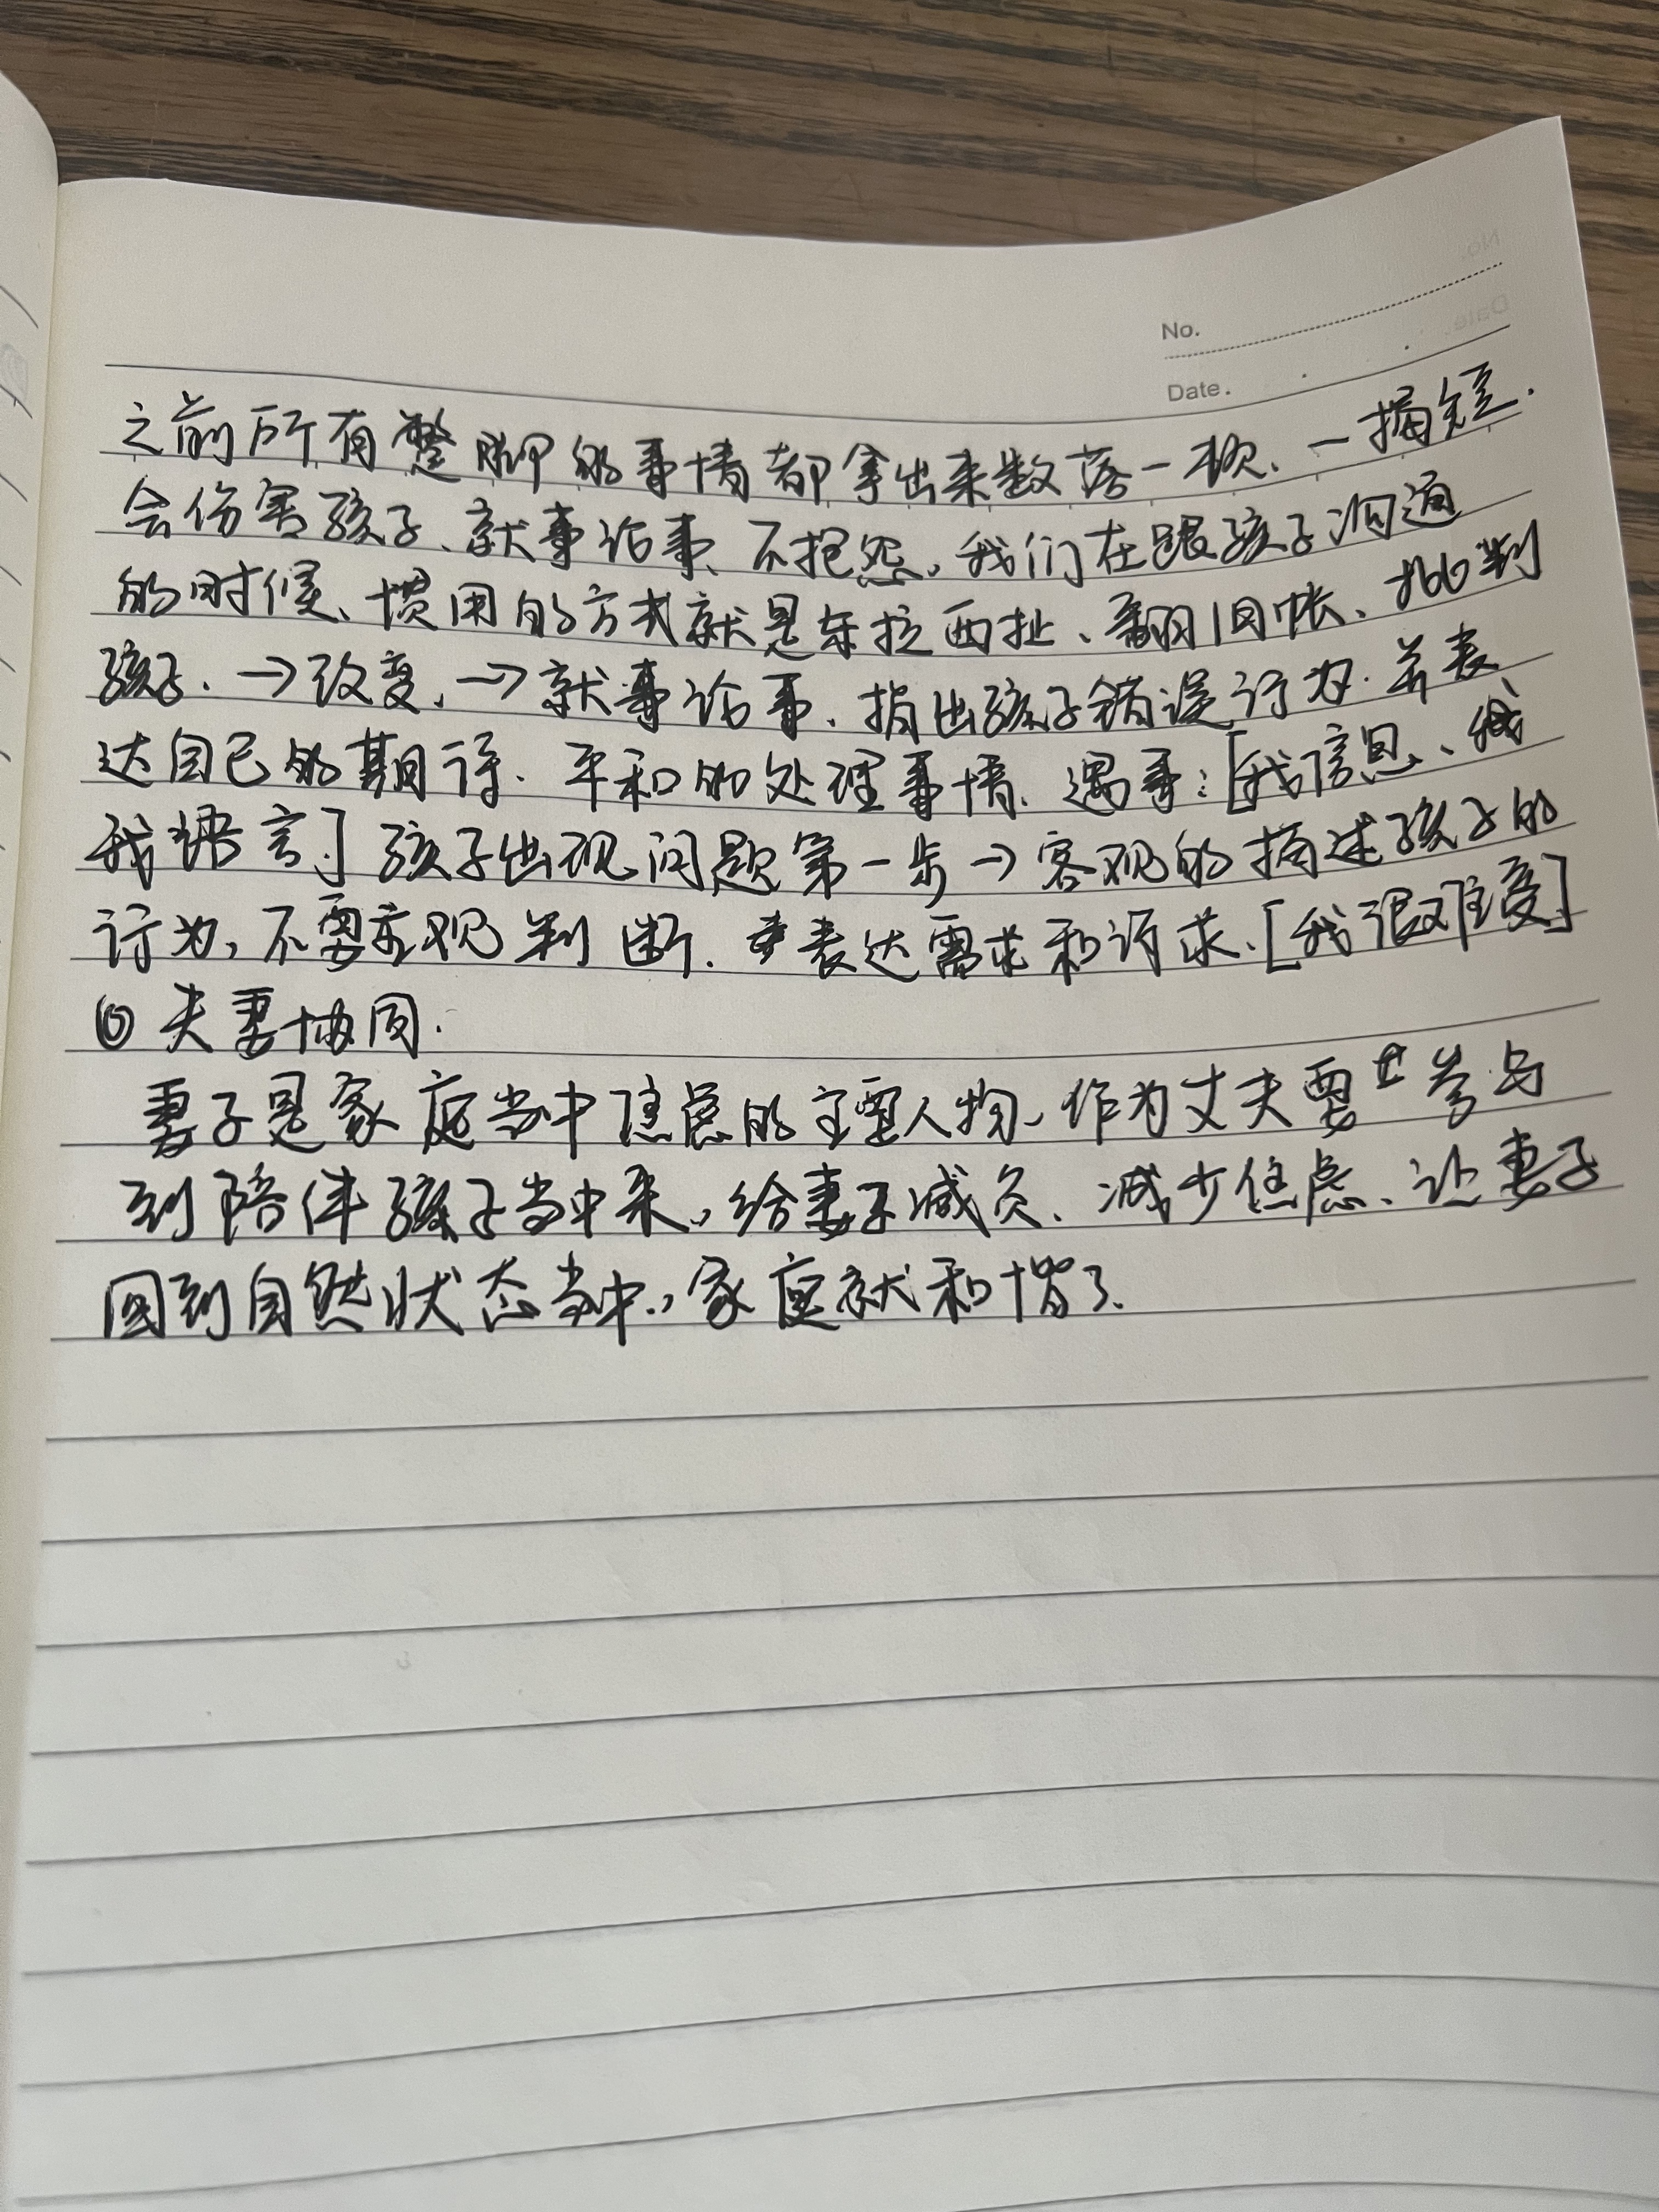 No.
Date.
之前所有蹩脚的事情都拿出来数落一次、一揭短.
会伤害孩子、就事论事、不抱怨,我们在跟孩子沟通
的时候、惯用的方式就是东拉西扯、翻旧帐、批判
孩子.→改变,→就事论事、指出孩子错误行为.并表
达自己的期待.平和的处理事情、遇事:[我信息、
我语言]孩子出现问题第一步→客观的描述孩子的
行为,不要主观判断.表达需求和诉求、[我很难受]
⑥夫妻协同.
妻子是家庭当中焦虑的主要人物、作为丈夫要参与
到陪伴孩子当中来,给妻子减负、减少焦虑、让妻子
回到自然状态当中.,家庭就和谐了.